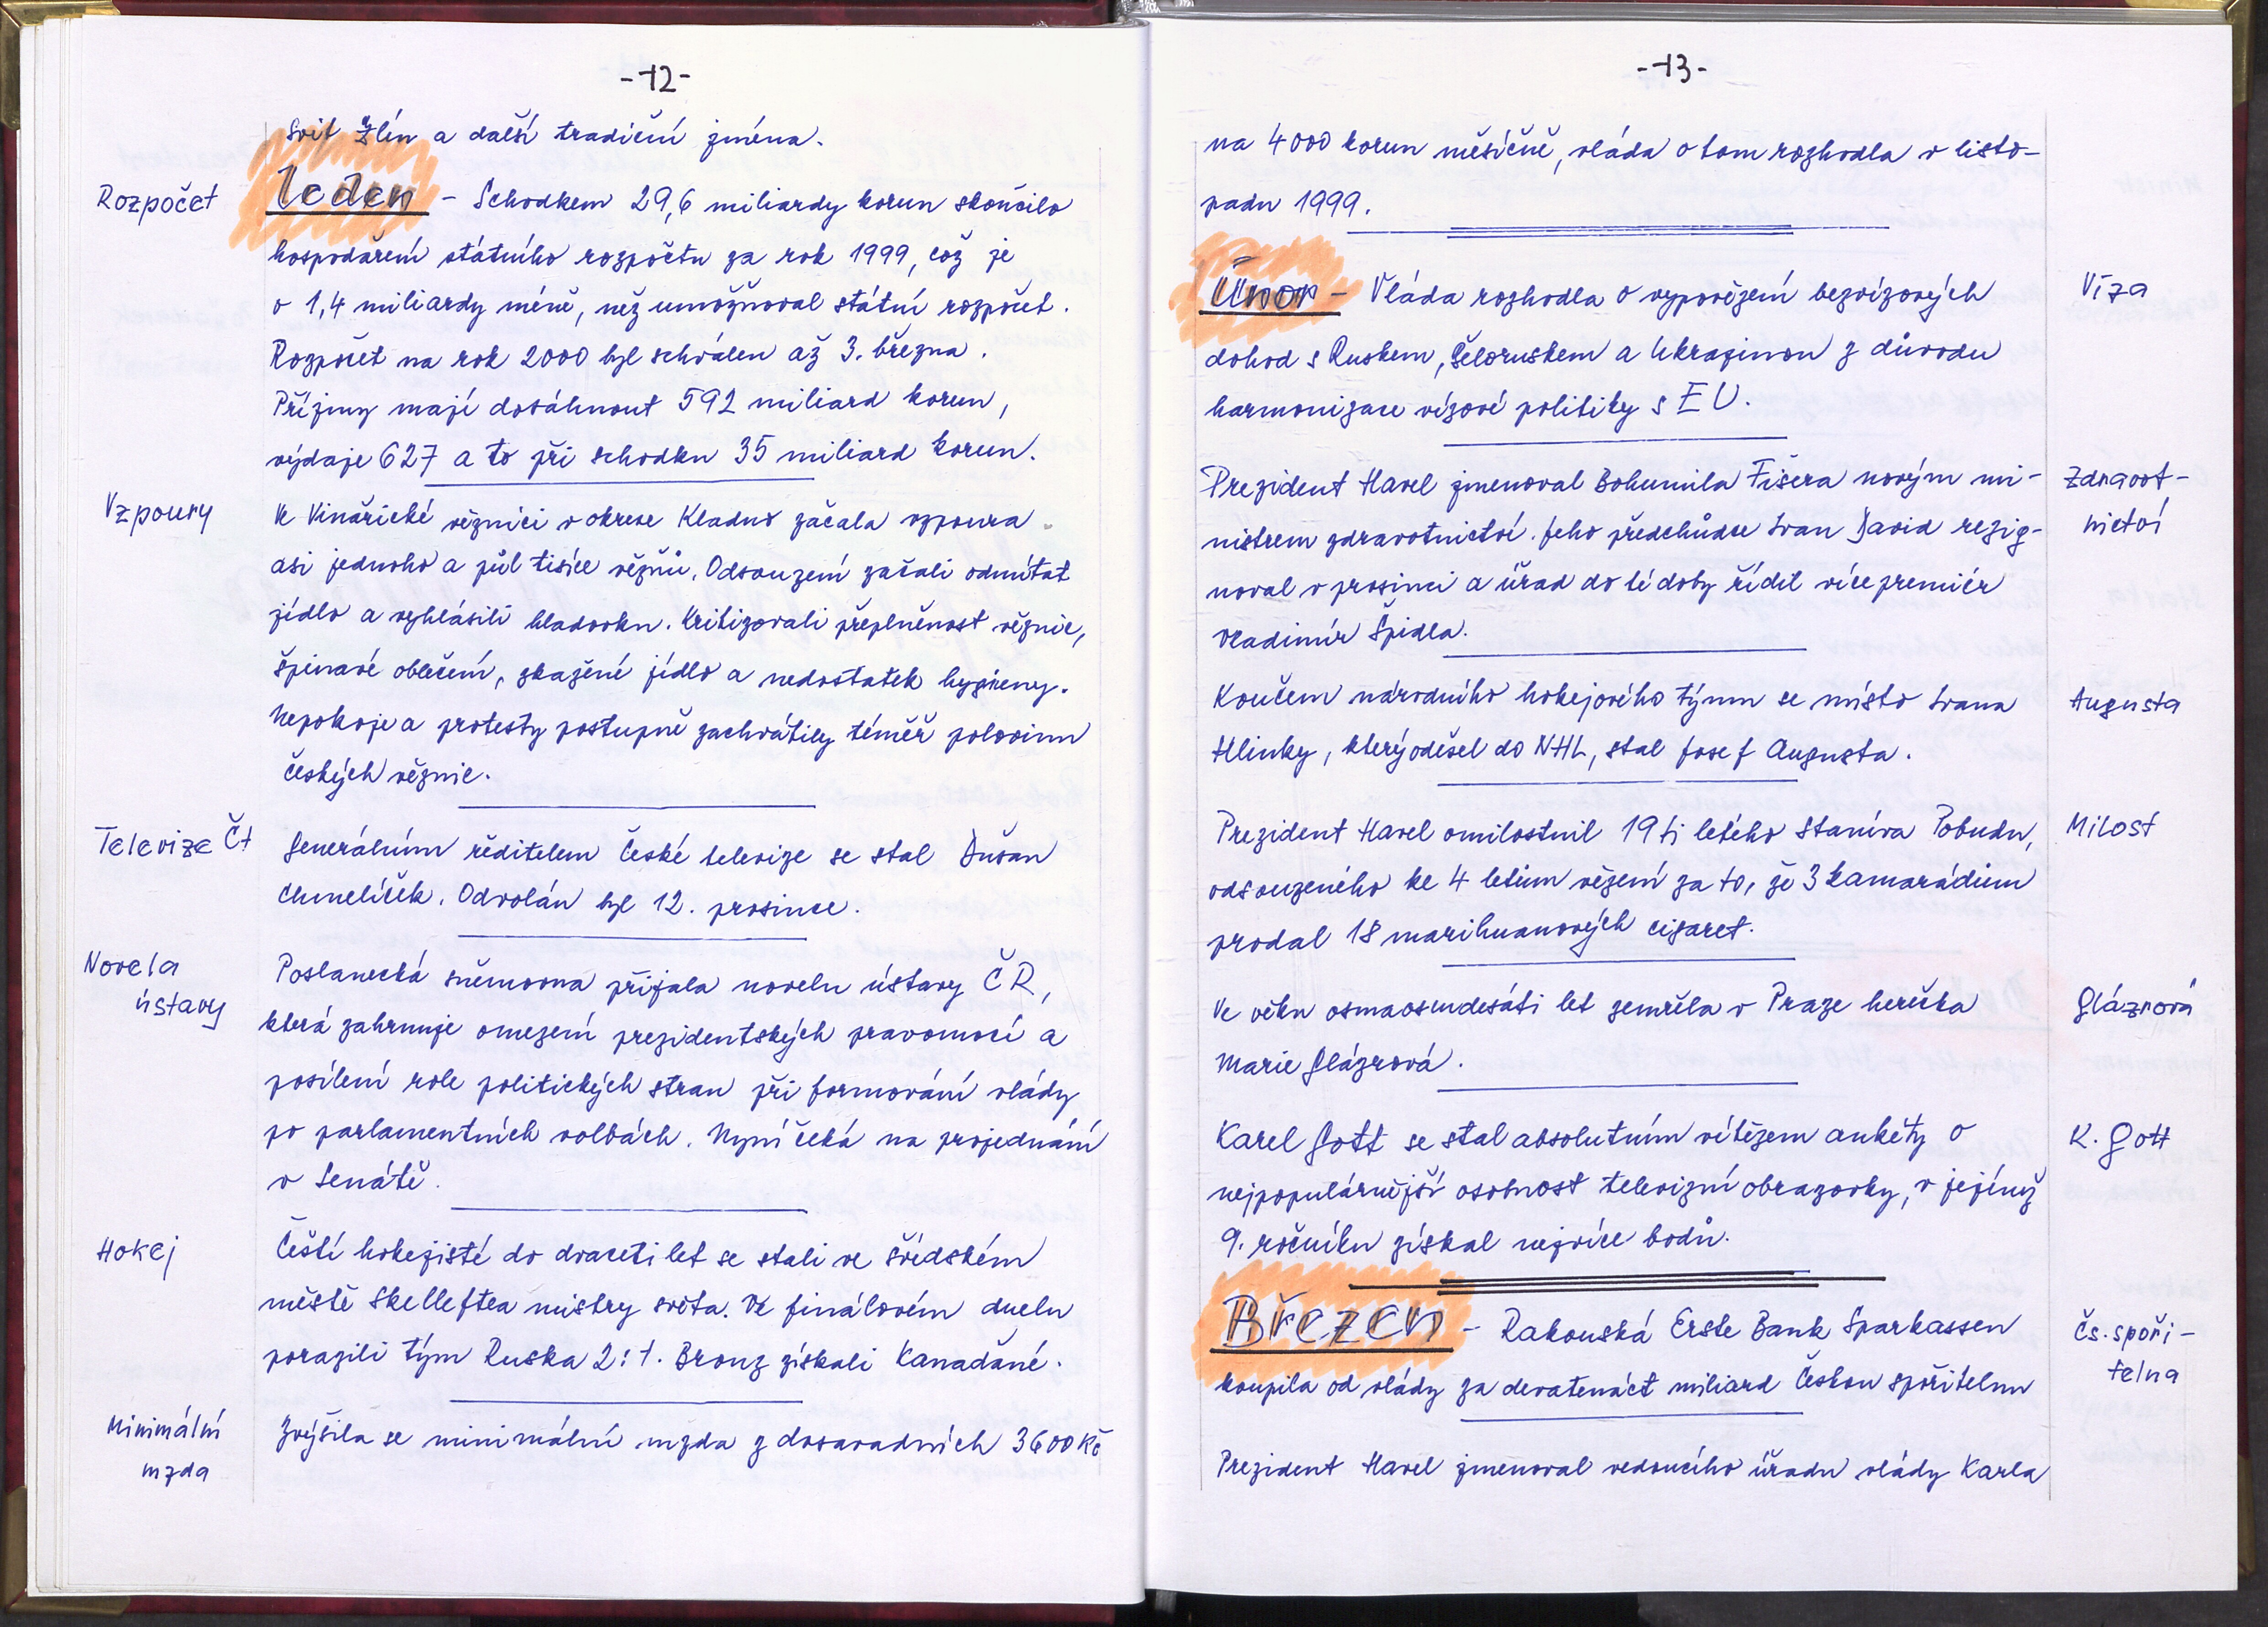 -12-
Svit Zlín a další tradiční jména.
Rozpočet
Leden - Schodkem 29,6 miliardy korun skončilo
hospodaření státního rozpočtu za rok 1999, což je
o 1,4 miliardy méně, než umožňoval státní rozpočet.
Rozpočet na rok 2000 byl schválen až 3. března.
Příjmy mají dosáhnout 592 miliard korun,
výdaje 627 a to při schodku 35 miliard korun.
Vzpoury
Ve Vinařické věznici v okrese Kladno začala vzpoura
asi jednoho a půl tisíce vězňů. Odsouzení začali odmítat
jídlo a vyhlásili hladovku. Kritizovali přeplněnost věznic,
špinavé oblečení, zkažené jídlo a nedostatek hygieny.
Nepokoje a protesty postupně zachvátily téměř polovinu
českých věznic.
Televize Čt
Generálním ředitelem České televize se stal Dušan
Chmelíček. Odvolán byl 12. prosince.
Novela
ústavy
Poslanecká sněmovna přijala novelu ústavy ČR,
která zahrnuje omezení prezidentských pravomocí a
posílení role politických stran při formování vlády
po parlamentních volbách. Nyní čeká na projednání
v Senátě.
Hokej
Čeští hokejisté do dvaceti let se stali ve švédském
městě Skelleftea mistry světa. Ve finálovém duelu
porazili tým Ruska 2:1. Bronz získali Kanaďané.
Minimální
mzda
Zvýšila se minimální mzda z dosavadních 3600 Kč
-13-
na 4000 korun měsíčně, vláda o tom rozhodla v listo-
padu 1999.
Únor - Vláda rozhodla o vypovězení bezvízových
Víza
dohod s Ruskem, Běloruskem a Ukrajinou z důvodu
harmonizace vízové politiky s EU.
Prezident Havel jmenoval Bohumila Fišera novým mi-
Zdravot-
nistrem zdravotnictví. Jeho předchůdce Ivan David rezig-
nictví
noval v prosinci a úřad do té doby řídil vícepremiér
Vladimír Špidla.
Koučem národního hokejového týmu se místo Ivana
Augusta
Hlinky, který odešel do NHL, stal Josef Augusta.
Prezident Havel omilostnil 19ti letého Staníva Pobudu,
Milost
odsouzeného ke 4 letům vězení za to, že 3 kamarádům
prodal 18 marihuanových cigaret.
Ve věku osmaosmdesáti let zemřela v Praze herečka
Glázrová
Marie Glázrová.
Karel Gott se stal absolutním vítězem ankéty o
K. Gott
nejpopulárnější osobnost televizní obrazovky, v jejímž
9. ročníku získal nejvíce bodů.
Březen - Rakouská Erste Bank Sparkassen
Čs. spoři-
telna
koupila od vlády za devatenáct miliard Českou spořitelnu
Prezident Havel jmenoval vedoucího úřadu vlády Karla